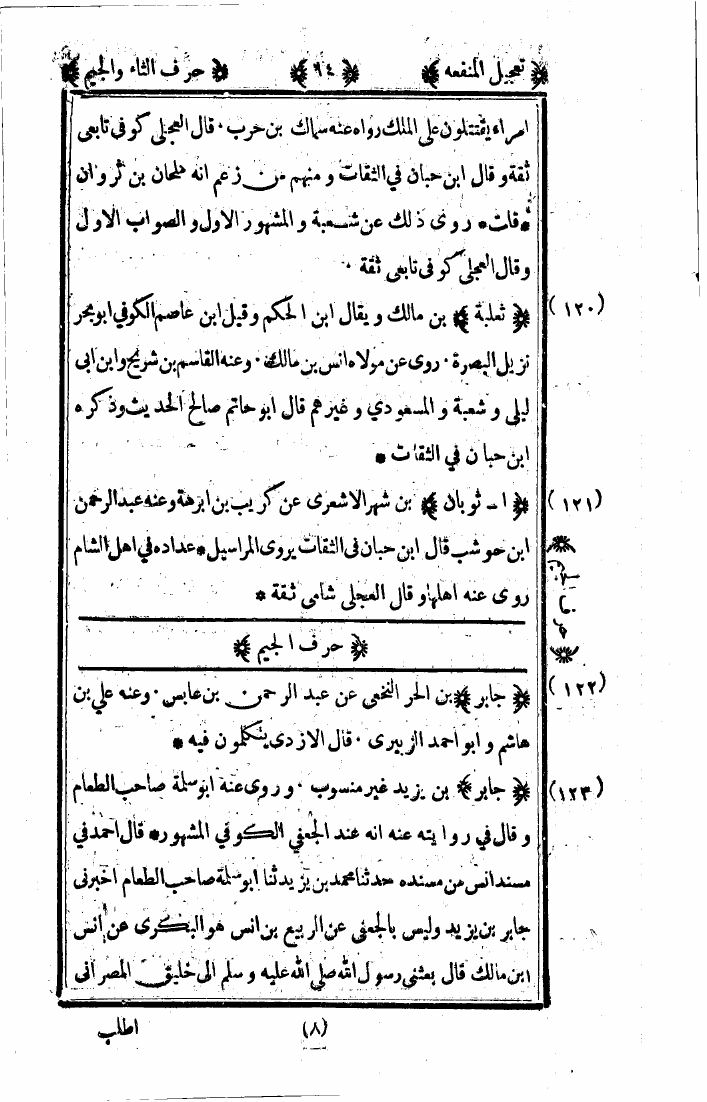 ﴿ تعجيل المنفعه ﴾ ﴿ ٦٤ ﴾ ﴿ حرف الثاء والجيم ﴾
امراء يقتتلون على الملك رواه عنه سماك بن حرب · قال العجلي كوفى تابعى
ثقة و قال ابن حبان في الثقات و منهم من زعم انه ملحان بن ثروان
* قلت * روى ذلك عن شعبة و المشهور الاول و الصواب الاول
وقال العجلي كوفى تابعى ثقة ·
(١٢٠) ﴿ ثعلبة ﴾ بن مالك و يقال ابن الحكم و قيل ابن عاصم الكوفي ابو بحر
نزيل البصرة · روى عن مولاه انس بن مالك · وعنه القاسم بن شريح وابن ابى
ليلى و شعبة و المسعودي و غيرهم قال ابو حاتم صالح الحديث وذكره
ابن حبان في الثقات *
(١٢١) ﴿ ا - ثوبان ﴾ بن شهر الاشعرى عن كريب بن ابرهة وعنه عبدالرحمن
ابن حوشب قال ابن حبان فى الثقات يروى المراسيل * عداده في اهل الشام
روى عنه اهلها و قال العجلى شامى ثقة *
﴿ حرف الجيم ﴾
﴿ حرف الجيم ﴾
(١٢٢) ﴿ جابر ﴾ بن الحر النخعى عن عبد الرحمن بن عابس · وعنه علي بن
هاشم و ابو احمد الزبيرى · قال الازدى يتكلمون فيه *
(١٢٣) ﴿ جابر ﴾ بن يزيد غير منسوب · و روى عنه ابو سلمة صاحب الطعام
و قال في روايته عنه انه عند الجعفي الكوفي المشهور * قال احمد في
مسند انس من مسنده حدثنا محمد بن يزيد ثنا ابو سلمة صاحب الطعام اخبرنى
جابر بن يزيد وليس بالجعفى عن الربيع بن انس هو البكرى عن انس
ابن مالك قال بعثنى رسول الله صلى الله عليه و سلم الى خليق المصرانى
(٨) اطلب